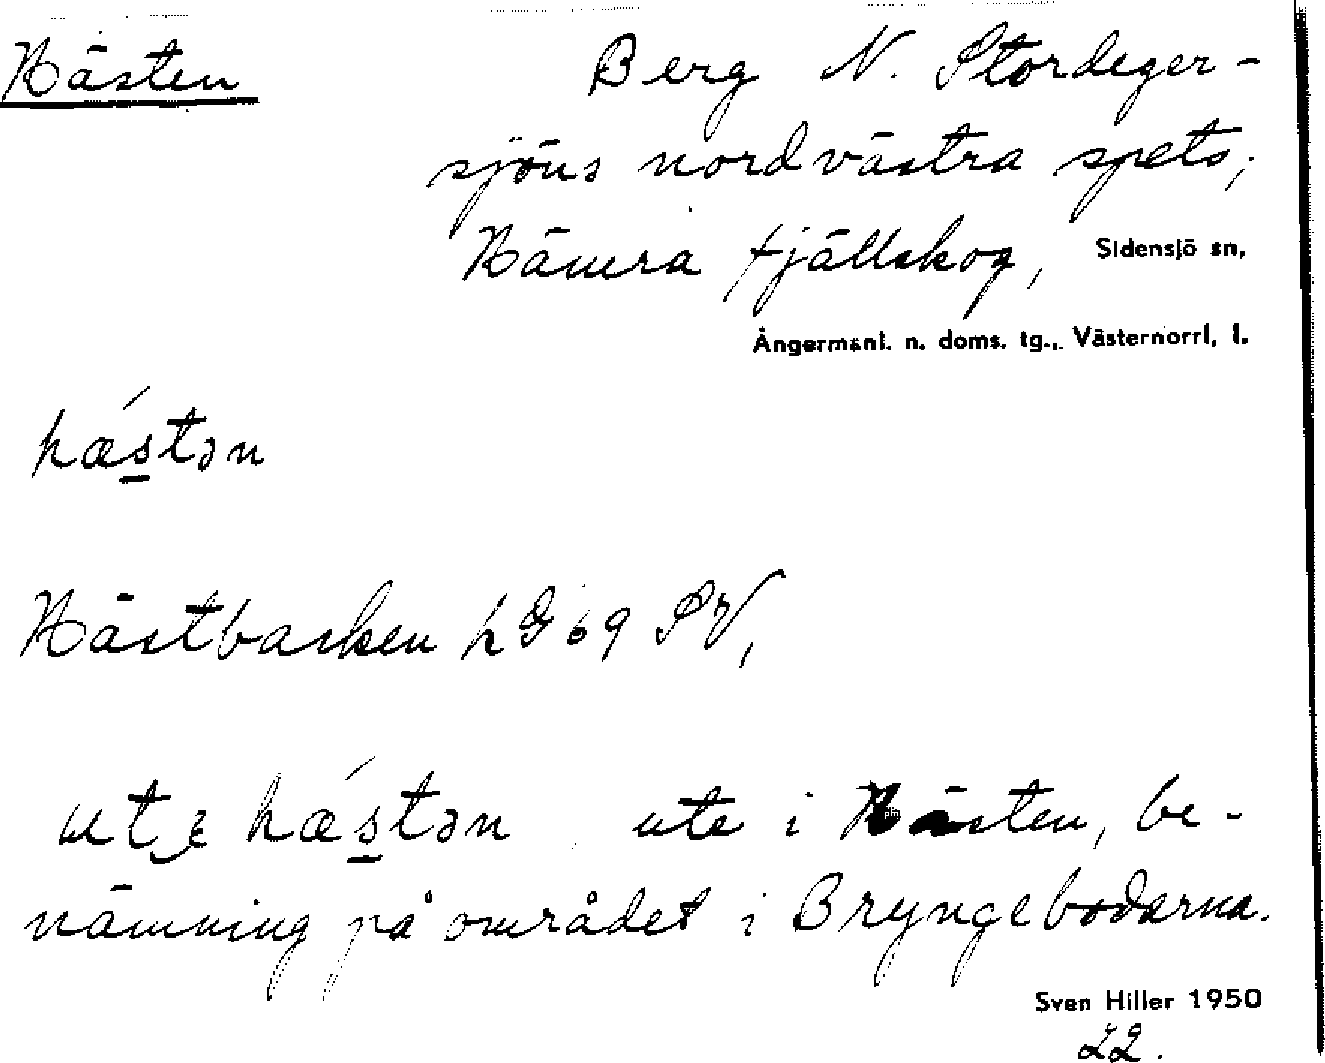 Hästen
Berg N. Stordeger-
sjöns nordvästra spets;
Hämra fjällskog, Sidensjö sn,
Ångermanl. n. doms. tg., Västernorrl, l.
hǽstən
Hästbacken h G 69 SV,
ut hǽstən ute i Hästen, be-
nämning på området i Bryngebodarna.
Sven Hiller 1950
22.